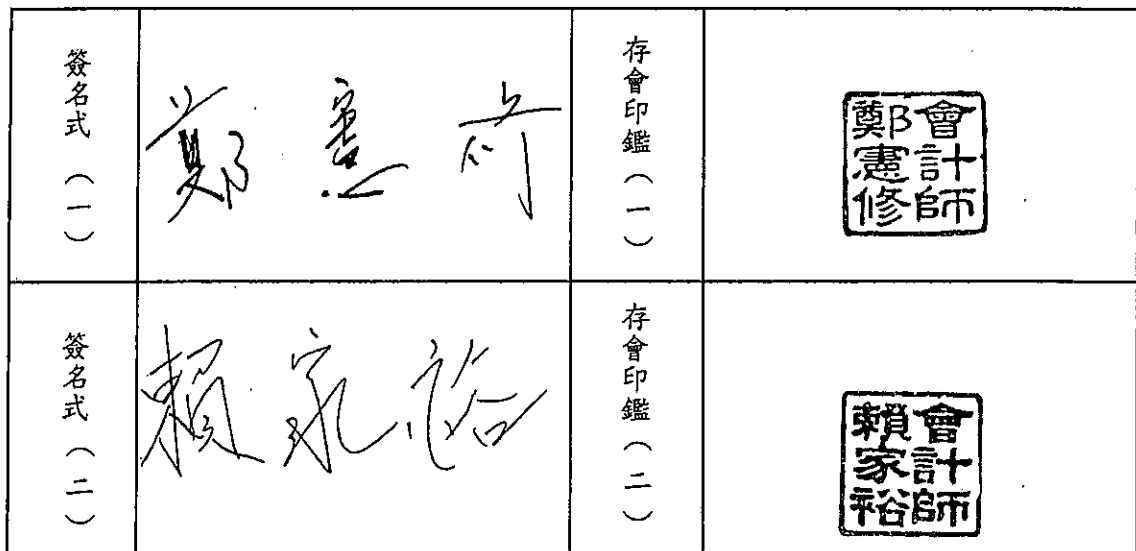 簽名式（一）
鄭憲修
存會印鑑（一）
會計師
鄭憲修
簽名式（二）
賴家裕
存會印鑑（二）
會計師
賴家裕